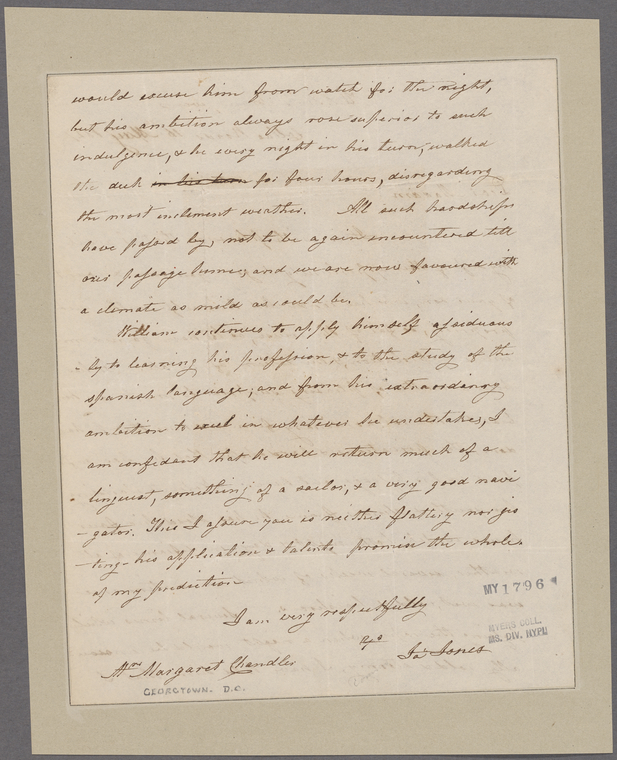 would excuse him from watch for the night,
but his ambition always rose superior to such
indulgence, & he every night in his turn, walked
the deck in his turn for four hours, disregarding
the most inclement weather. All such hardships
have passed by, not to be again encountered till
our passage home, and we are now favoured with
a climate as mild as could be.
William continues to apply himself assiduous
- ly to learning his profession, & to the study of the
spanish language, and from his extraordinary
ambition to excel in whatever he undertakes, I
am confident that he will return much of a
- linguist, something of a sailor, & a very good navi
- gator. This I assure you is neither flattery nor jes
- ting - his application & talents promise the whole
of my prediction
I am very respectfully
Jas Jones
Mrs Margaret Chandler
GEORGETOWN. D.C.
MY 1796
MYERS COLL.
MS. DIV. NYPL